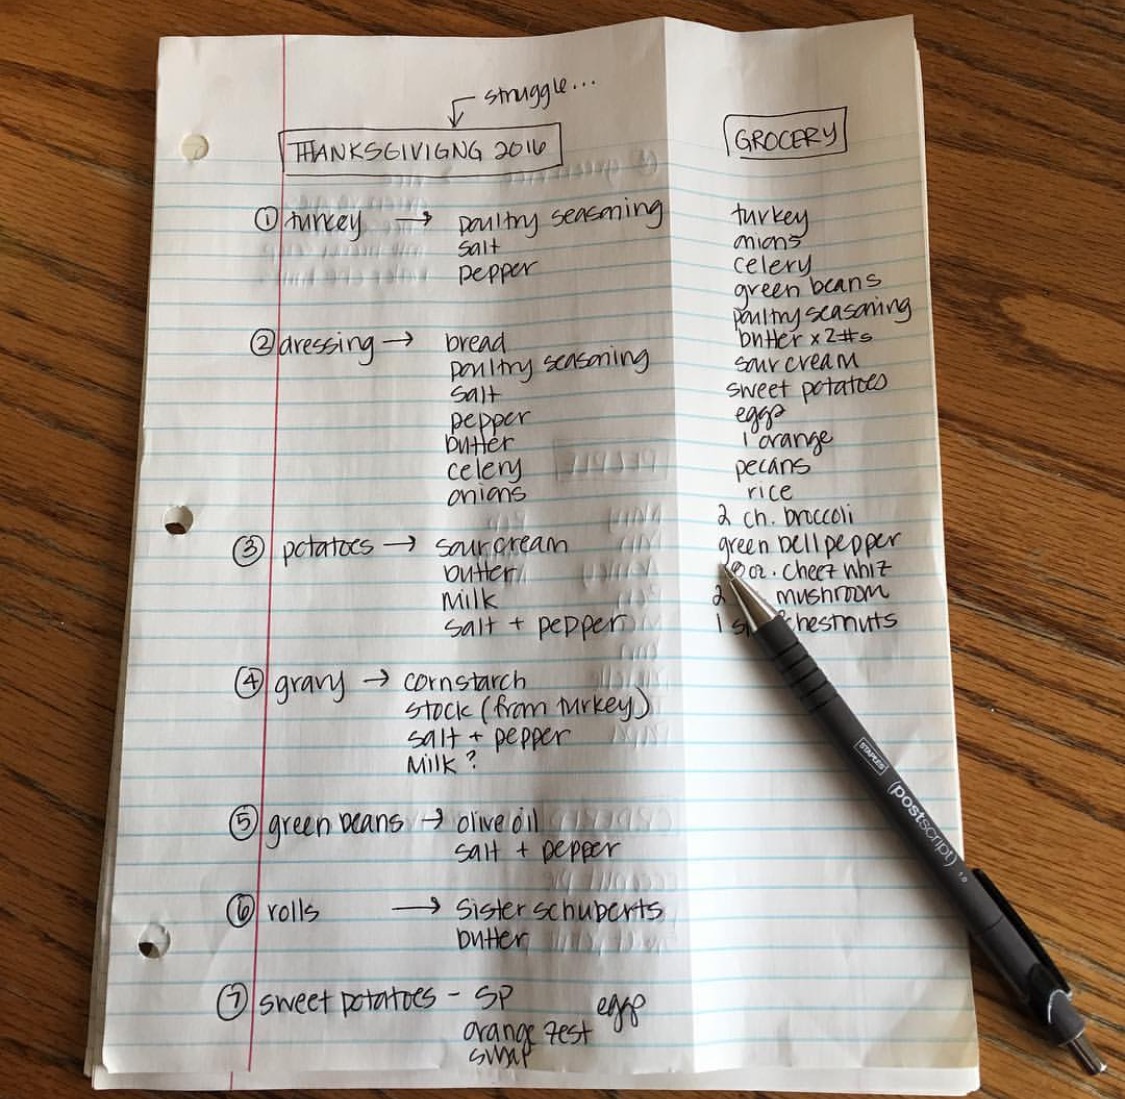 struggle...
THANKSGIVIGNG 2016
① turkey → poultry seasoning
salt
pepper
② dressing → bread
poultry seasoning
salt
pepper
butter
celery
onions
③ potatoes → sour cream
butter
Milk
salt + pepper
④ gravy → cornstarch
stock (from turkey)
salt + pepper
Milk ?
⑤ green beans → olive oil
salt + pepper
⑥ rolls → Sister schuberts
butter
⑦ sweet potatoes - SP
eggs
orange zest
GROCERY
turkey
onions
celery
green beans
poultry seasoning
butter x 2#s
sour cream
sweet potatoes
eggs
1 orange
pecans
rice
2 ch. broccoli
green bell pepper
oz. cheez whiz
2 mushroom
1 chestnuts
STAPLES
(postscript) 1.0